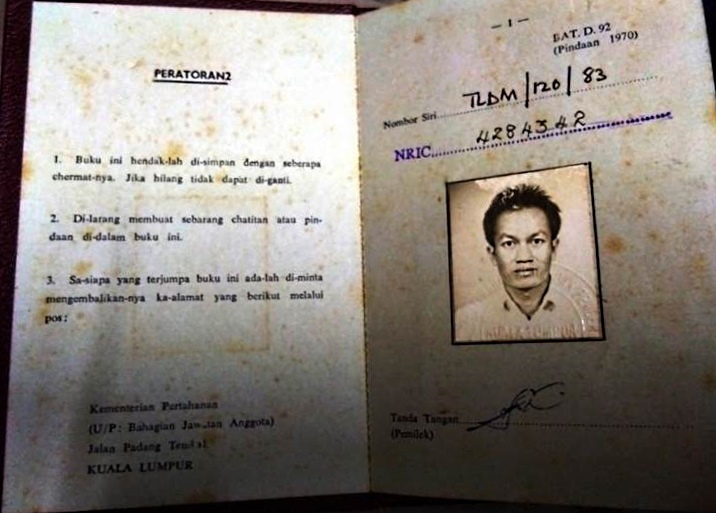 PERATORAN2
1. Buku ini hendak-lah di-simpan dengan seberapa
chermat-nya. Jika hilang tidak dapat di-ganti.
2. Di-larang membuat sebarang chatitan atau pin-
daan di-dalam buku ini.
3. Sa-siapa yang terjumpa buku ini ada-lah di-minta
mengembalikan-nya ka-alamat yang berikut melalui
pos:
Kementerian Pertahanan
(U/P: Bahagian Jawatan Anggota)
Jalan Padang
KUALA LUMPUR
— 1 —
BAT. D. 92
(Pindaan 1970)
Nombor Siri TLDM/120/83
NRIC 4284342
Tanda Tangan
(Pemilek)